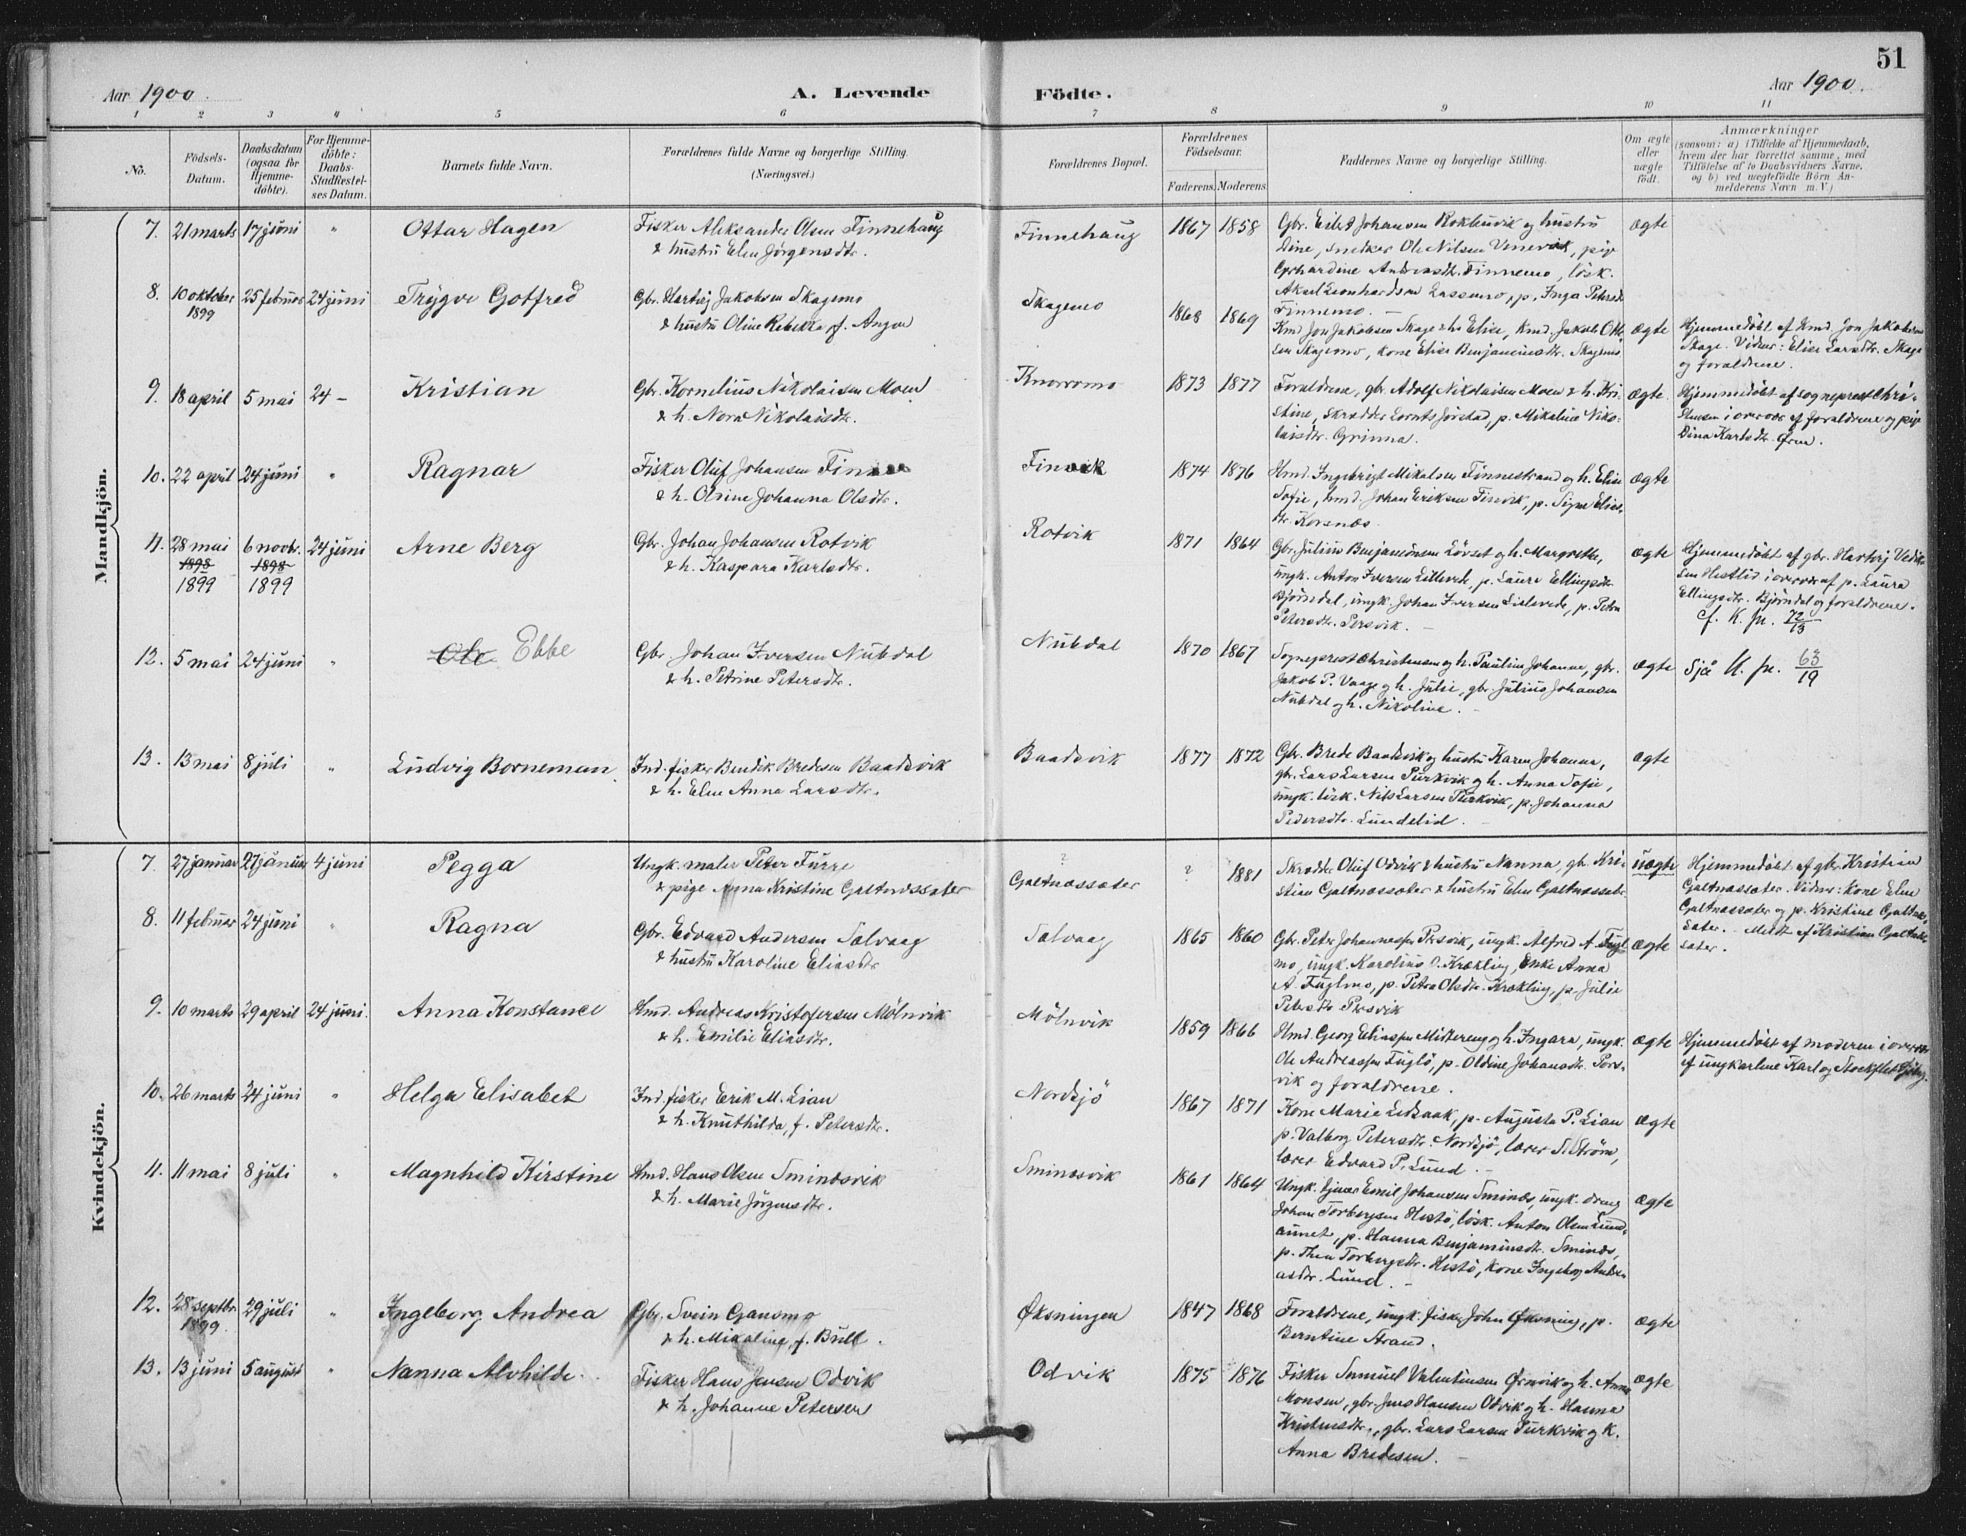 51
Aar 1900.
A. Levende
Födte.
Aar 1900.
1 2 3 4 5 6 7 8 9 10 11
No.
Födsels-
Datum.
Daabsdatum
(ogsaa for
Hjemme-
döbte).
For Hjemme-
döbte:
Daabs-
Stadfæstel-
ses Datum.
Barnets fulde Navn.
Forældrenes fulde Navne og borgerlige Stilling.
(Næringsvei.)
Forældrenes Bopæl.
Forældrenes
Födselsaar.
Faderens. Moderens.
Faddernes Navne og borgerlige Stilling.
Om ægte
eller
uægte
födt.
Anmærkninger
(saasom: a) i Tilfælde af Hjemmedaab,
hvem der har forrettet samme, med
Tilföielse af to Daabsvidners Navne,
og b) ved uægtefödte Börn An-
melderens Navn m. V.)
Mandkjön.
7. 21 marts 17 juni " Ottar Hagen
Fisker Aleksander Olsen Finnehaug
& hustru Elen Jørgensdtr.
Finnehaug 1867 1858
Gbr. Eilert Johansen Roklunvik og hustru
Dine, snekker Ole Nilsen Venevik, pig
Gerhardine Andreasdtr. Finnemo, løsk.
Aksel Leonhardsen Lassemo, p. Inga Petersdtr
Finnemo.
ægte
8. 10 oktober 1899 25 februar 24 juni Trygve Gotfred
Gbr. Hartvig Jakobsen Skagemo
& hustru Oline Rebekka f. Angen
Skagemo 1868 1869
Kmd. Jon Jakobsen Skage & h. Elise, kmd. Jakob Ot-
sen Skagemo, kone Elise Benjaminsdtr. Skagemo
ægte
Hjemmedöbt af kmd. Jon Jakobsen
Skage. Vidner: Elise Larsdtr. Skage
og forældrene.
9. 18 april 5 mai 24 – Kristian
Gbr. Kornelius Nikolaisen Moen
& h. Nora Nikolaisdtr.
Knorromo 1873 1877
Forældrene, gbr. Adolf Nikolaisen Moen & h. Kri-
stine, skrædder Lornts Jørstad, p. Mikaline Niko-
laisdtr. Grinna.
ægte.
Hjemmedöbt af sogneprest Chri-
stensen i overvær af forældrene og pige
Dina Karlsdtr. Øren.
10. 22 april 24 juni " Ragnar
Fisker Oluf Johansen
& h. Olsine Johanna Olsdtr.
Finvik 1874 1876
Hmd. Ingebrigt Mikalsen Finnestrand og h. Elise
Sofie, hmd. Johan Eriksen Finvik, p. Signe Elias-
dtr. Korsnæs.
ægte
11. 28 mai 1898 1899 6 novbr. 1898 1899 24 juni Arne Berg
Gbr. Johan Johansen Rotvik
& h. Kaspara Karlsdtr.
Rotvik 1871 1864
Gbr. Julius Benjaminsen Løvset og h. Margrethe,
ungk. Anton Iversen Lillevede, p. Laura Ellingsdtr.
Bjørndal, ungk. Johan Iversen Lislevede, p. Petra
Petersdtr. Persvik.
ægte
Hjemmedöbt af gbr. Hartvig Vedik-
sen Hestlid i overvær af p. Laura
Ellingsdtr. Bjørndal og forældrene.
cf. K. pr. 72/13
12. 5 mai 24 juni " Ole Ebbe
Gbr. Johan Iversen Nubdal
& h. Petrine Petersdtr.
Nubdal 1870 1867
Sogneprest Christensen og h. Pauline Johanne, gbr.
Jakob P. Vaage og h. Julie, gbr. Julius Johansen
Nubdal og h. Nikoline.
ægte
Sjå K. pr. 63/19
13. 13 mai 8 juli " Ludvig Borneman
Ind. fisker Bendik Bredesen Baadsvik
& h. Elen Anna Larsdtr.
Baadsvik 1877 1872
Gbr. Brede Baadsvik og hustru Karen Johanna,
gbr. Lars Larsen Purkvik og h. Anna Sofie,
ungk. løsk. Nils Larsen Purkvik, p. Johanna
Pedersdtr. Lundelid.
ægte
Kvindekjön.
7. 27 januar 27 januar 4 juni Pegga
Ungk. maler Peter Furre
& pige Anna Kristine Galtnæssæter
?
Galtnæssæter ? 1881
Skrædder Oluf Odvik & hustru Nanna, gbr. Kri-
stian Galtnæssæter & hustru Elen Galtnæssæter
uægte
Hjemmedöbt af gbr. Kristian
Galtnæssæter. Vidner: kone Elen
Galtnæssæter og p. Kristine Galtnæs-
sæter. – Meldt af Kristian Galtnæs-
sæter.
8. 11 februar 24 juni " Ragna
Gbr. Edvard Andersen Salvaag
& hustru Karoline Eliasdtr
Salvaag 1865 1860
Gbr. Peter Johannessen Persvik, ungk. Alfred A. Fugl-
mo, ungk. Karolius O. Krækling, Enke Anna
A. Fuglmo, p. Petra Olsdtr. Krækling, p. Julie
Petersdtr Persvik
ægte
9. 10 marts 29 april 24 juni. Anna Konstance
Hmd. Andreas Kristofersen Mölnvik
& h. Emilie Eliasdtr.
Mölnvik 1859 1866
Hmd. Georg Eliassen Mittereng og h. Ingara, ungk.
Ole Andreassen Fuglö, p. Oldine Johansdtr. Pors-
vik og forældrene.
ægte
Hjemmedöbt af moderen i overvær
af ungkarlene Karl og Stockflet
10. 26 marts 24 juni " Helga Elisabet
Ind. fisker Erik M. Lian
& h. Knuthilda, f. Petersdtr.
Nordsjö 1867 1871
Kone Marie Ledsaak, p. Augusta P. Lian
p. Valborg Petersdtr. Nordsjö, lærer S. Ström,
lærer Edvard P. Lund.
ægte
11. 11 mai 8 juli " Magnhild Kirstine
Hmd. Hans Olsen Sminæsvik
& h. Marie Jørgensdtr.
Sminæsvik 1861 1864
Ungk. tjener Emil Johansen Sminæs, ungk. dreng
Johan Torbergsen Hestö, løsk. Anton Olsen Lund-
aunet, p. Hanna Benjaminsdtr. Sminæs,
p. Thea Torbergsdtr. Hestö, kone Ingeborg Andre-
asdtr. Lund.
ægte
12. 28 septbr. 1899. 29 juli " Ingeborg Andrea
Gbr. Svein Gansmo
& h. Mikaline, f. Bull.
Øksningen 1847 1868
Forældrene, ungk. fisker John Øksning, p.
Berntine Strand.
ægte
13. 13 juni 5 august " Nanna Alvhilde
Fisker Hans Jensen Odvik
& h. Johanne Petersen
Odvik 1875 1876
Fisker Samuel Valentinsen Ørnvik og h. Anna
Monsen, gbr. Jens Hansen Odvik og h. Hanna
Kristensdtr., gbr. Lars Larsen Purkvik og k.
Anna Bredesen.
ægte